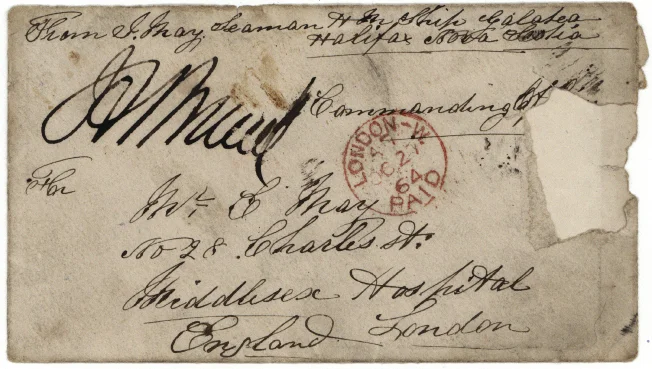 From J. May, Seaman H M Ship Galatea
Halifax Nova Scotia
Commanding
LONDON-W
27
64
PAID
For
Mr. E May
No 28 Charles St.
Middlesex Hospital
England London